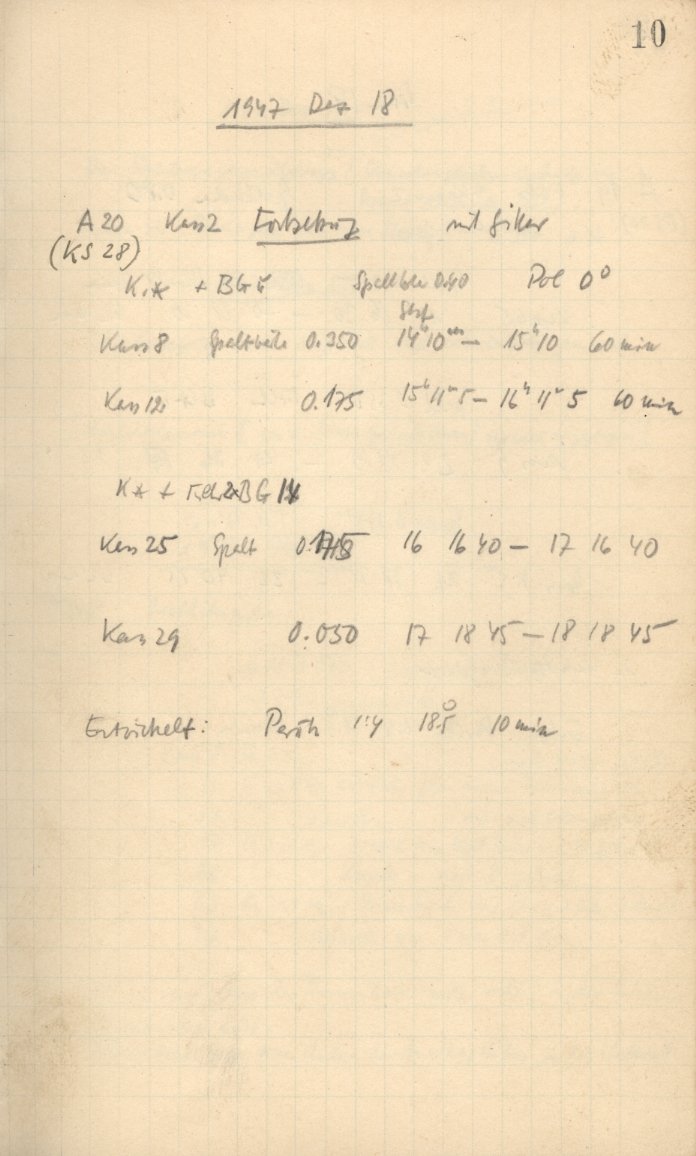 10
1947 Dez 18
A 20 Kass 2 Fortsetzung mit Filter
(KS 28)
K. * + BG Spaltbr 0.40 Pol 0°
Kass 8 Spaltweite 0.350 14h10m — 15h10 60 min
Kass 12 0.175 15h11m5 — 16h11m5 60 min
K* + 2xBG 14
Kass 25 Spalt 16 16 40 — 17 16 40
Kass 29 0.050 17 18 45 — 18 18 45
Entwickelt: 1:4 18.5° 10 min